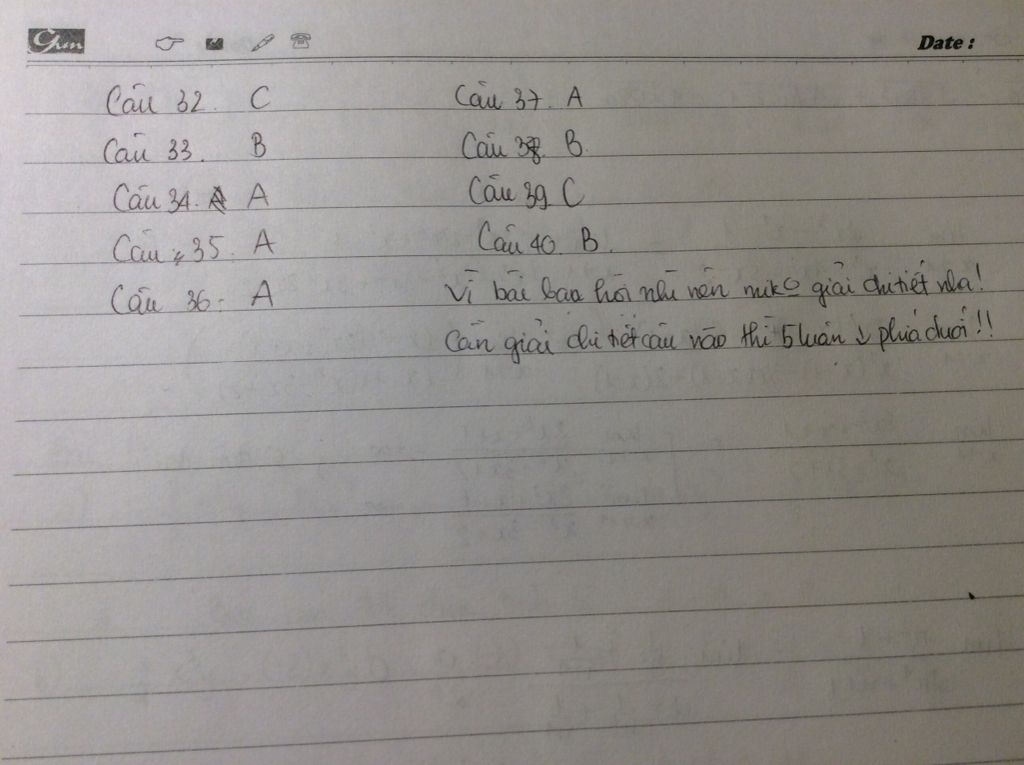 Date :
Câu 32. C
Câu 33. B
Câu 34. A
Câu 35. A
Câu 36. A
Câu 37. A
Câu 38. B
Câu 39 C
Câu 40. B.
Vì bài bạn hỏi nhìu nên mik o giải chi tiết nha!
Cần giải chi tiết câu nào thì bluân ↓ phía dưới!!